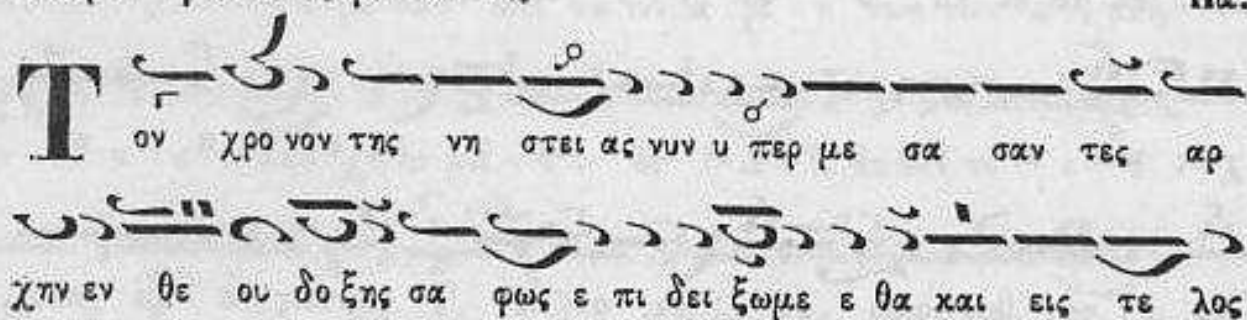 Πα.
Τ ον χρο νον της νη στει ας νυν υ περ με σα σαν τες αρ
χην εν θε ου δο ξης σα φως ε πι δει ξωμε ε θα και εις τε λος